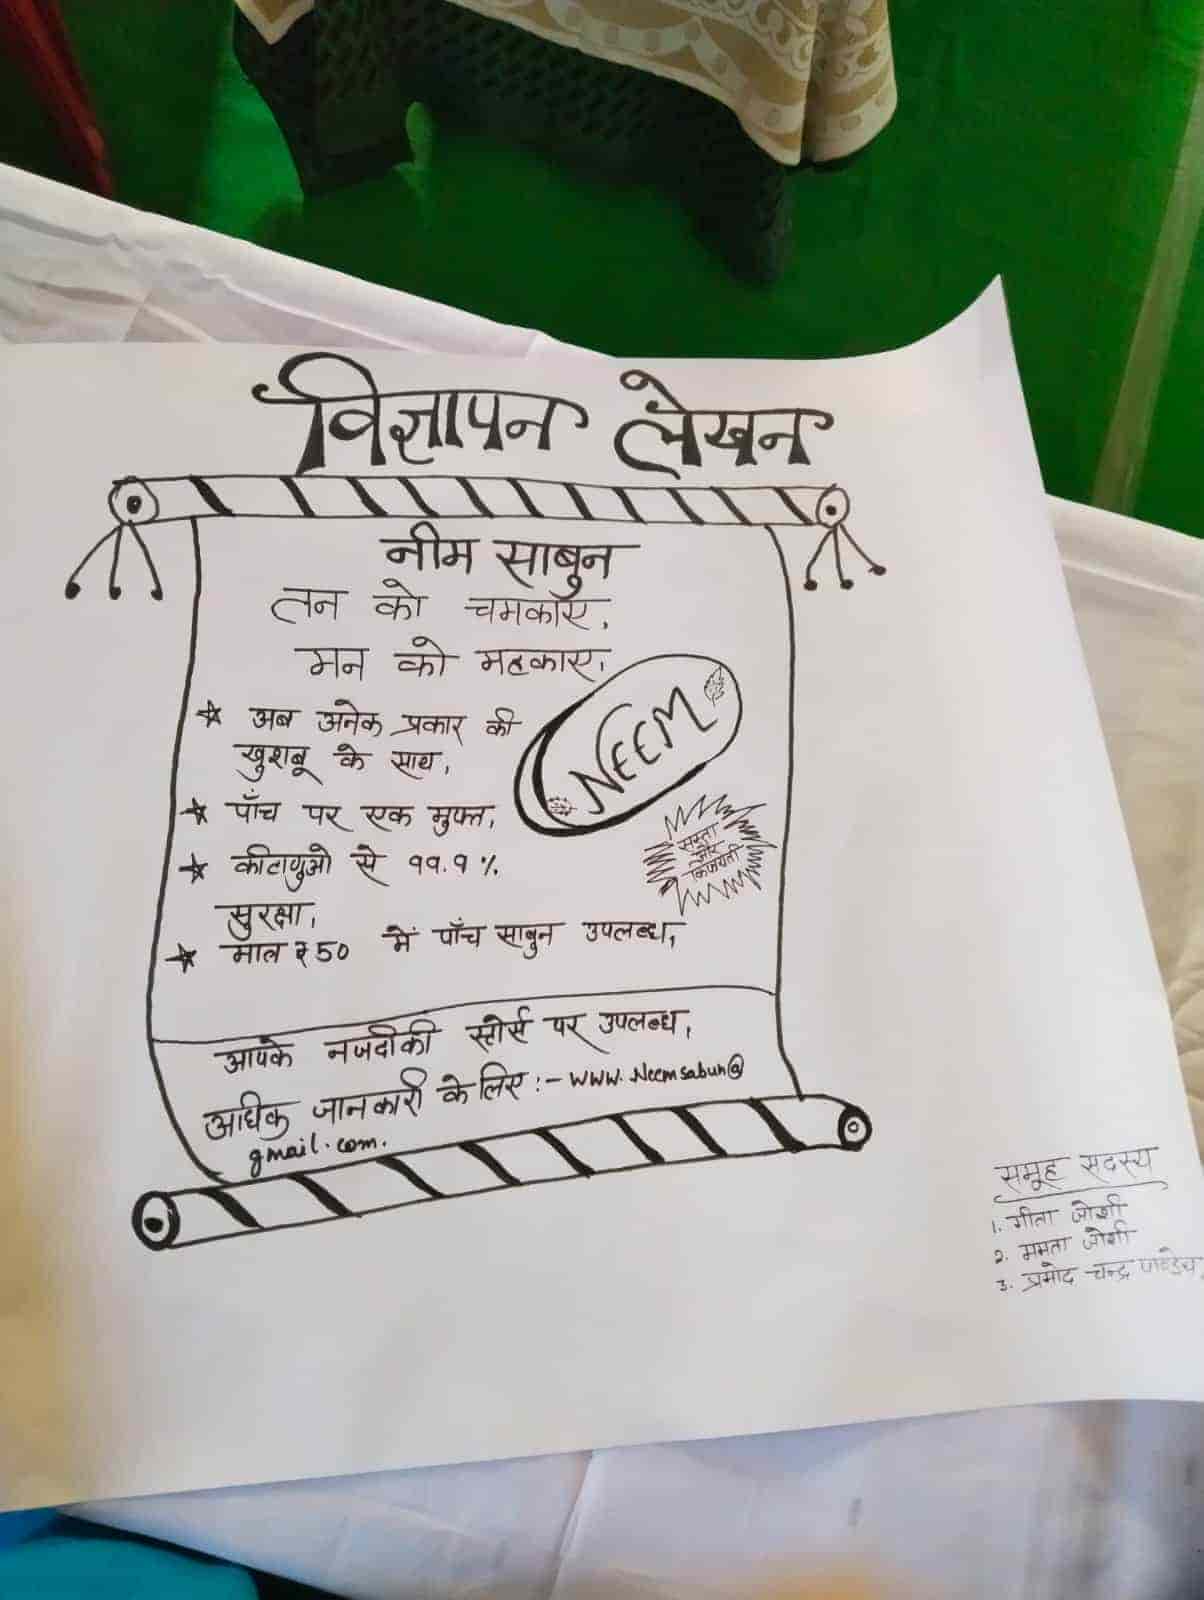 विज्ञापन लेखन
नीम साबुन
तन को चमकाए,
मन को महकाए,
अब अनेक प्रकार की
खुशबू के साथ,
NEEM
पाँच पर एक मुफ्त,
कीटाणुओ से ९९.९ %
सुरक्षा,
सस्ता
और
किफायती
मात्र ₹ 50 में पाँच साबुन उपलब्ध,
आपके नजदीकी स्टोर्स पर उपलब्ध,
अधिक जानकारी के लिए :- www. Neemsabun@
gmail.com.
समूह सदस्य
1. गीता जोशी
2. ममता जोशी
3. प्रमोद चन्द्र पाण्डेय